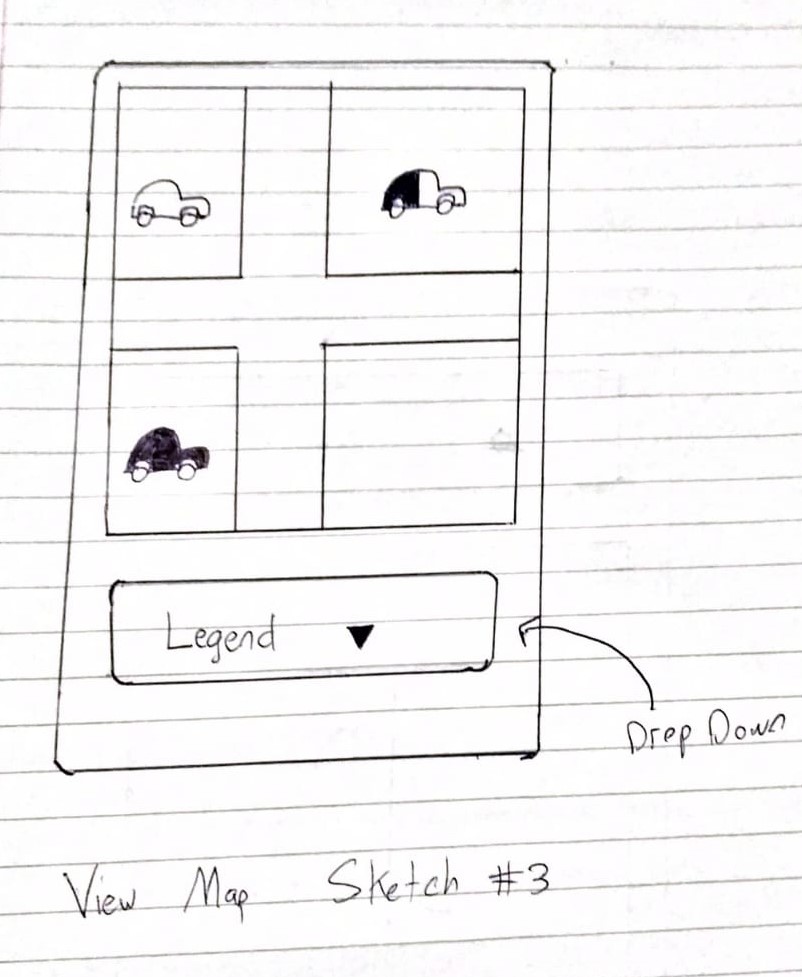 Legend ▼
Drop Down
View Map Sketch #3